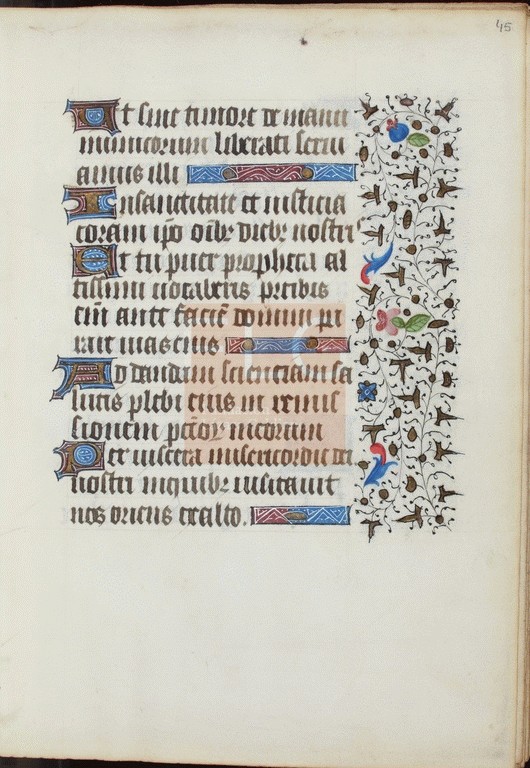 45
Ut sine timore de manu
inimicorum liberati serui
amus illi
In sanctitate et iusticia
coram ipo oībꝫ diebꝫ nostris
Et tu puer propheta al
tissimi uocaberis preibis
eīm ante faciē domini pa
rare uias eius
Ad dandam scienciam sa
lutis plebi eius in remis
sionem pctōꝝ meorum
Per uiscera misericordie dei
nostri inquibꝫ uisitauit
nos oriens exalto.